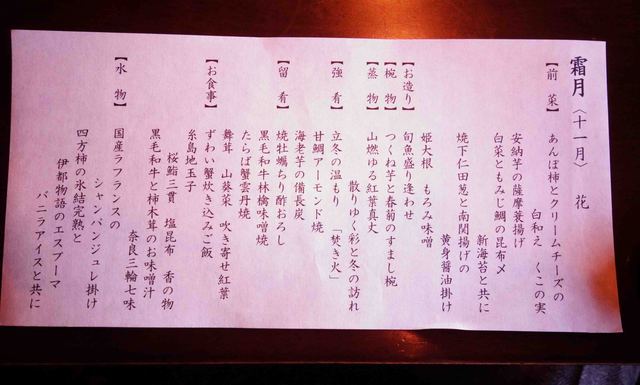 霜月〈十一月〉 花
【前菜】 あんぽ柿とクリームチーズの
白和え くこの実
安納芋の薩摩蓑揚げ
白菜ともみじ鯛の昆布〆
新海苔と共に
焼下仁田葱と南関揚げの
黄身醤油掛け
姫大根 もろみ味噌
【お造り】 旬魚盛り逢わせ
【椀物】 つくね芋と春菊のすまし椀
【蒸物】 山燃ゆる紅葉真丈
散りゆく彩と冬の訪れ
【強肴】 立冬の温もり 「焚き火」
甘鯛アーモンド焼
海老芋の備長炭
【留肴】 焼牡蠣ちり酢おろし
黒毛和牛林檎味噌焼
たらば蟹雲丹焼
舞茸 山葵菜 吹き寄せ紅葉
【お食事】 ずわい蟹炊き込みご飯
糸島地玉子
桜鮨三貫 塩昆布 香の物
黒毛和牛と柿木茸のお味噌汁
奈良三輪七味
【水物】 国産ラフランスの
シャンパンジュレ掛け
四方柿の氷結完熟と
伊都物語のエスプーマ
バニラアイスと共に